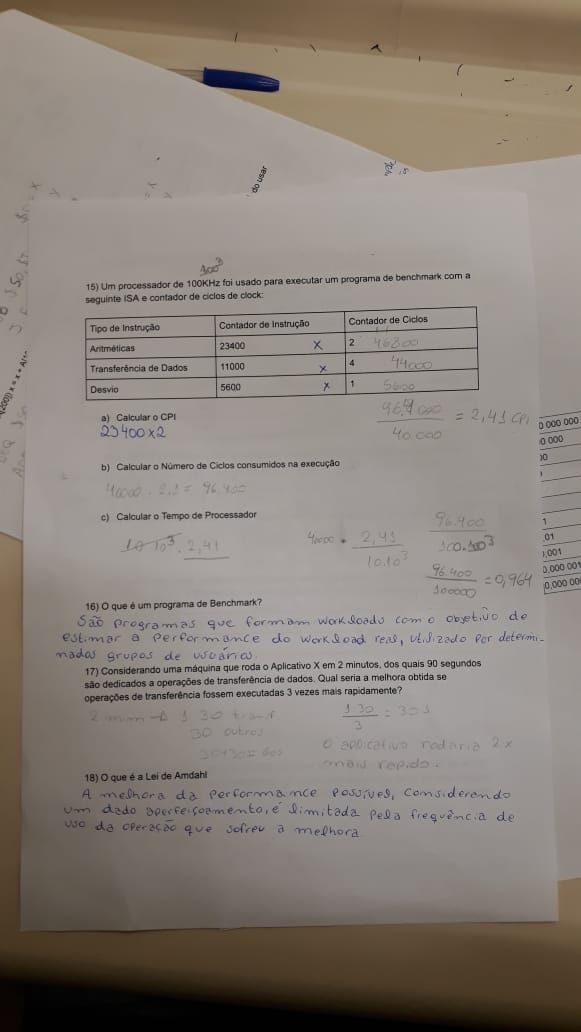 do usar
100³
15) Um processador de 100KHz foi usado para executar um programa de benchmark com a
seguinte ISA e contador de ciclos de clock:
Tipo de Instrução Contador de Instrução Contador de Ciclos
Aritméticas 23400 x 2 46800
Transferência de Dados 11000 x 4 44000
Desvio 5600 x 1 5600
a) Calcular o CPI
23400x2
96.400
40.000
= 2,41 CPI
b) Calcular o Número de Ciclos consumidos na execução
40000 . 2,1 = 96.400
c) Calcular o Tempo de Processador
10 10³ . 2,41
40000 • 2,41
10.10³
96.400
100.10³
96.400
100000
= 0,964
16) O que é um programa de Benchmark?
São programas que formam workloads com o objetivo de
estimar a performance do workload real, utilizado por determi-
nados grupos de usuários.
17) Considerando uma máquina que roda o Aplicativo X em 2 minutos, dos quais 90 segundos
são dedicados a operações de transferência de dados. Qual seria a melhora obtida se
operações de transferência fossem executadas 3 vezes mais rapidamente?
2 min → 1 30 transf
30 outros
30+30=60s
1 30
3
= 30s
O applicativo rodaria 2x
mais rapido.
18) O que é a Lei de Amdahl
A melhora da performance possível, considerando
um dado aperfeiçoamento, é limitada pela frequência de
uso da operação que sofreu a melhora
0 000 000
0 000
00
1
01
0,001
0,000 001
0,000 00